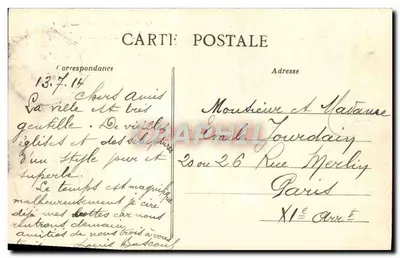 CARTE POSTALE
Correspondance
Adresse
13.7.14
Chers amis
La ville est très
gentille. De vieilles
églises et des
d'un style pur et
superbe.
Le temps est magnifique
malheureusement je cire
déjà mes bottes car nous
rentrons demain
amitiés de nous trois à vous
trois Louis
Monsieur et Madame
Jourdain
20 ou 26 Rue Merlin
Paris
XIe Arrt